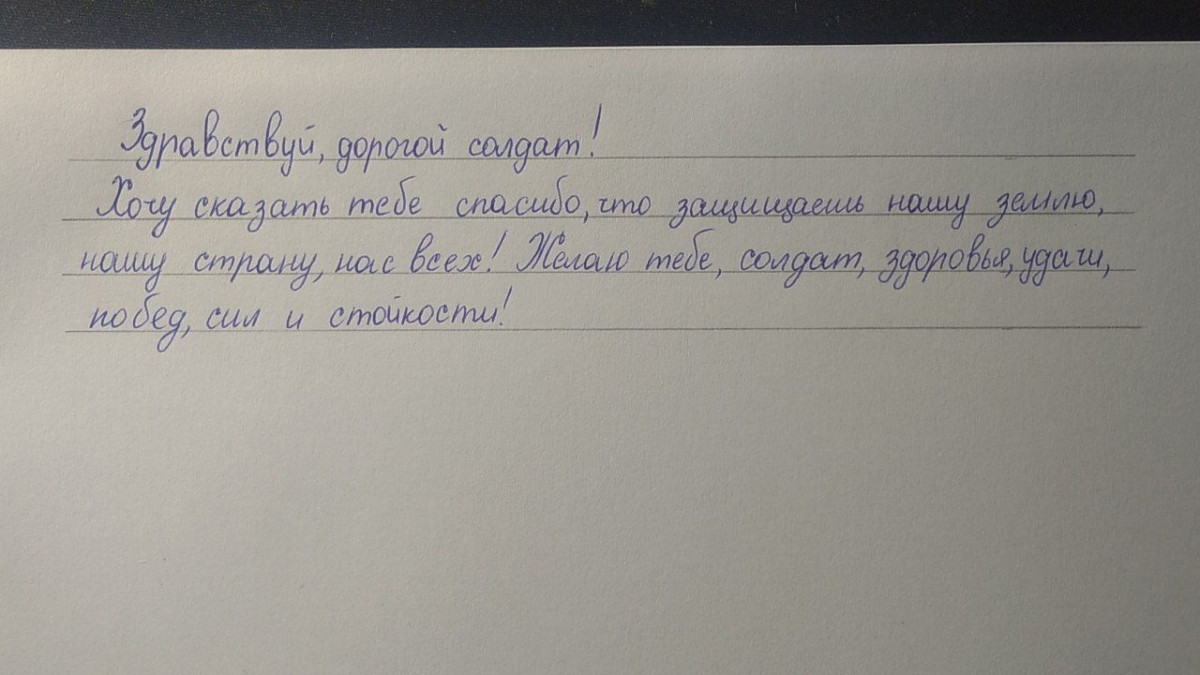 Здравствуй, дорогой солдат!
Хочу сказать тебе спасибо, что защищаешь нашу землю,
нашу страну, нас всех! Желаю тебе, солдат, здоровья, удачи,
побед, сил и стойкости!